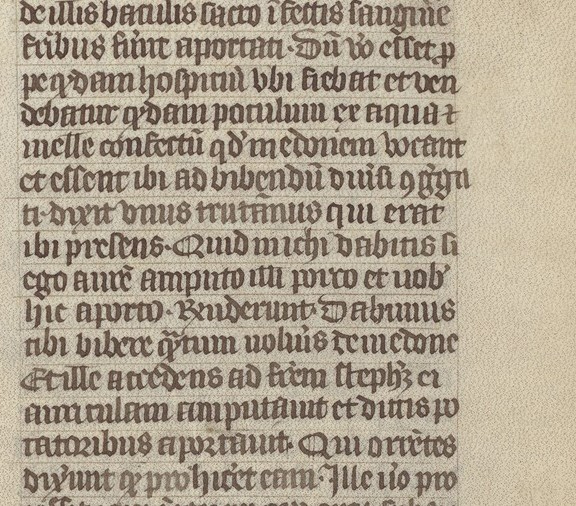 de illis baculis sacro īfectis sanguīe
fr̄ibus fuīt aportati. Dū v̊o esset ꝓ
pe qͥdam hospiciū vbi fiebat et ven
debatur qͦdam poculum ex aqua ⁊
melle confectū qd̕ medonem vocant
et essent ibi ad bibendū diūsi ꝯgͤga
ti. dixit vnus trutannus qui erat
ibi presens. Quid michi dabitis si
ego aurē amputo illi porco et uob̕
hic aporto. Rn̄derunt. Dabimus
tibi bibere qͣ̄tum uoluīs de medone
Et ille accedens ad fr̄em stephꝫ ei
auriculam amputauit et dictis po
tatoribus aportauit. Qui orrētes
dixerunt qͦ prohiceret eam. Ille ůo pro